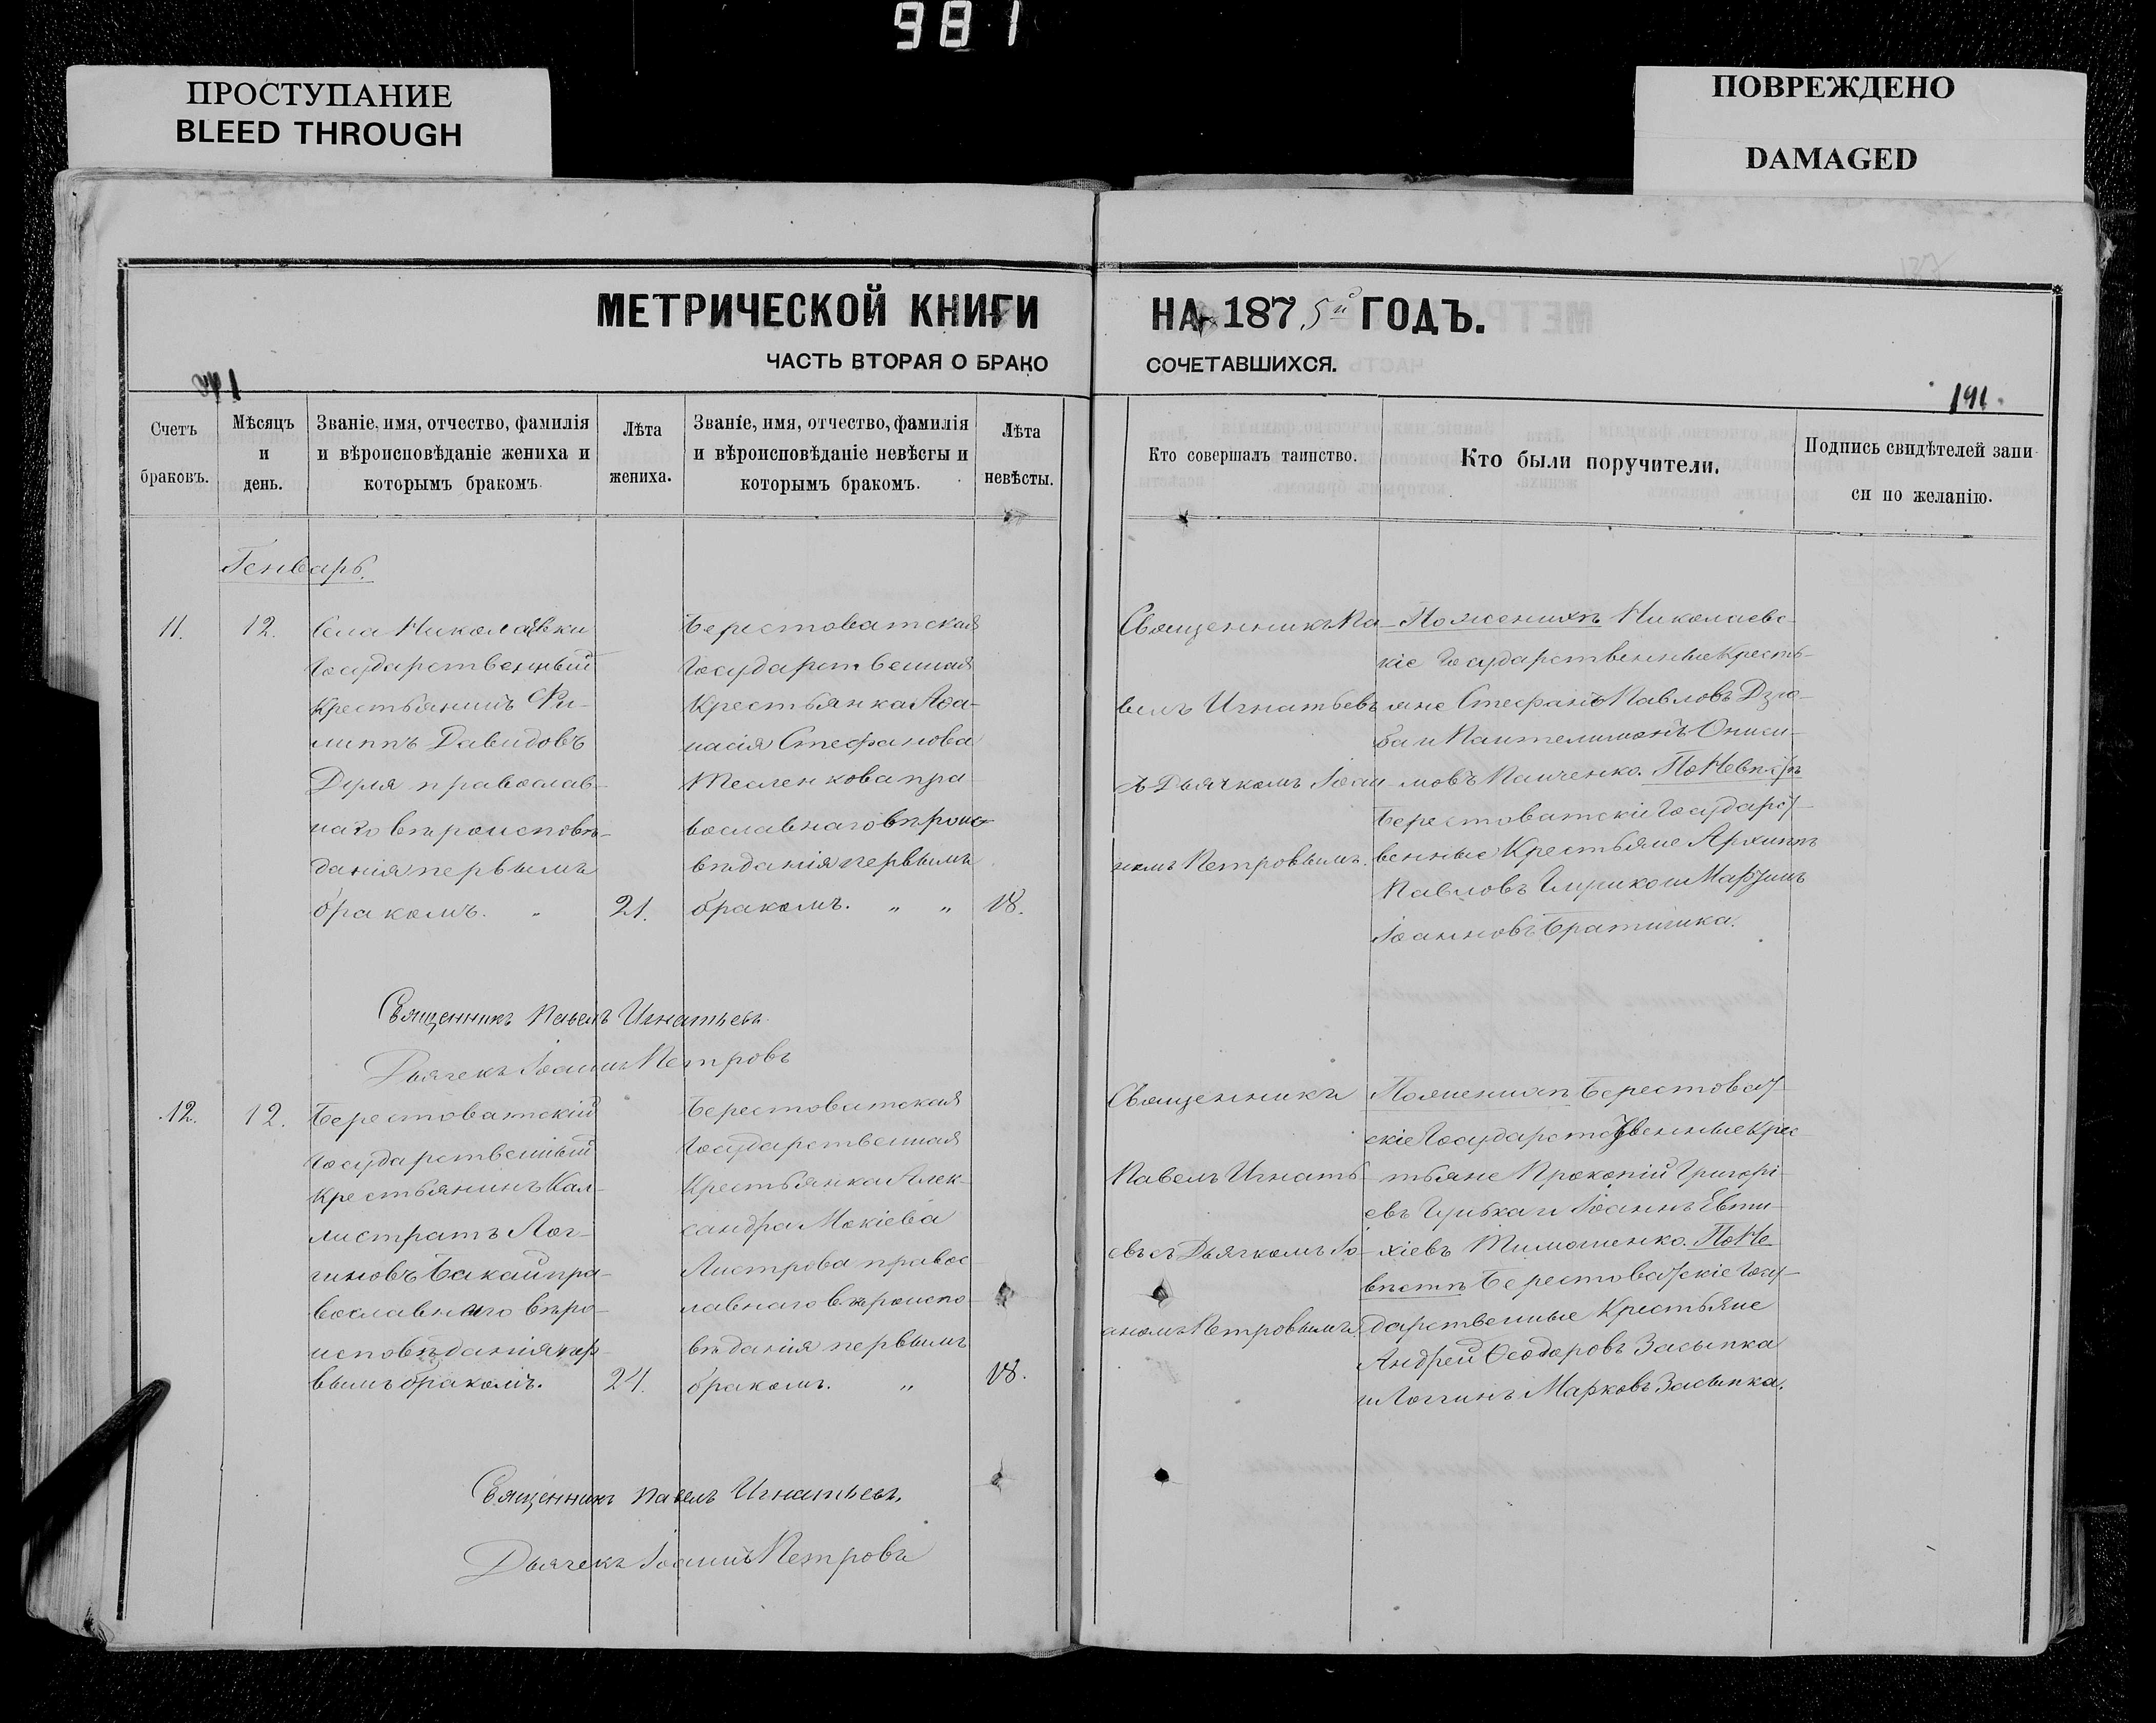 981
ПРОСТУПАНИЕ
BLEED THROUGH
ПОВРЕЖДЕНО
DAMAGED
МЕТРИЧЕСКОЙ КНИГИ НА 1875й ГОДЪ.
ЧАСТЬ ВТОРАЯ О БРАКОСОЧЕТАВШИХСЯ.
191.
Счетъ браковъ.
Мѣсяцъ и день.
Званіе, имя, отчество, фамилія
и вѣроисповѣданіе жениха и
которымъ бракомъ.
Лѣта жениха.
Званіе, имя, отчество, фамилія
и вѣроисповѣданіе невѣсты и
которымъ бракомъ.
Лѣта невѣсты.
Кто совершалъ таинство.
Кто были поручители.
Подпись свидѣтелей запи
си по желанію.
Генварь.
11.
12.
Села Николаевки
Государственный
Крестьянинъ Фи-
липпъ Давидовъ
православ-
наго вѣроисповѣ-
данія первымъ
бракомъ. "
21.
Берестоватская
Государственная
Крестьянка Афа-
насія Стефанова
Тесленкова пра-
вославнаго вѣроис-
вѣданія первымъ
бракомъ. " "
18.
Священникъ Па-
велъ Игнатьевъ
съ Дьячкомъ Іоан-
номъ Петровымъ.
По женихѣ Николаевс-
кіе Государственные Кресть-
яне Стефанъ Павловъ Дзю-
ба и Пантелимонъ Ониси-
мовъ Панченко. По Невѣстѣ
Берестоватскіе Государст-
венные Крестьяне Архиппъ
Павловъ
Іоанновъ Братишка.
Священникъ Павелъ Игнатьевъ
Дьячекъ Іоаннъ Петровъ
12.
12.
Берестоватскій
Государственный
Крестьянинъ Кал-
листратъ Лог-
гиновъ Бакай пра-
вославнаго вѣро-
исповѣданія пер-
вымъ бракомъ.
24.
Берестоватская
Государственная
Крестьянка Алек-
сандра Мокіева
Листрова правос-
лавнаго вѣроиспо-
вѣданія первымъ
бракомъ. "
18.
Священникъ
Павелъ Игнать-
евъ съ Дьячкомъ Іо-
аномъ Петровымъ.
По женихѣ Берестоват-
скіе Государственные Крес
тьяне Прокопій Григорі-
евъ Цибка и Іоаннъ Евти-
хіевъ Тимошенко. По Не-
вѣстѣ Берестоватскіе Госу-
дарственные Крестьяне
Андрей Ѳеодоровъ Засыпка
и Логгинъ Марковъ Засыпка.
Священникъ Павелъ Игнатьевъ.
Дьячекъ Іоаннъ Петровъ